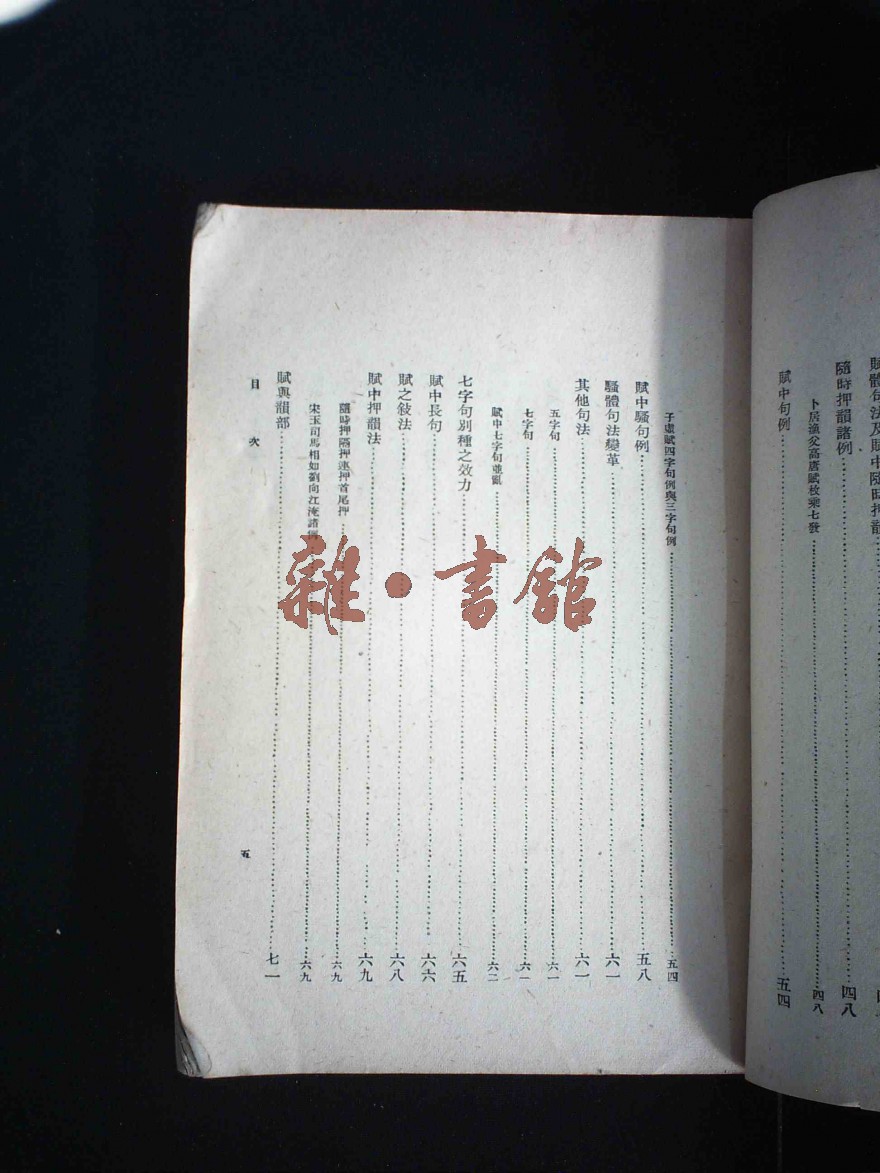 賦體句法及賦中隨時押韻
隨時押韻諸例 四八
卜居漁父高唐賦枚乘七發 四八
賦中句例 五四
子虛賦四字句例與三字句例 五四
賦中騷句例 五八
騷體句法變革 六一
其他句法 六一
五字句 六一
七字句 六一
賦中七字句並亂 六二
七字句別種之效力 六五
賦中長句 六六
賦之敍法 六八
賦中押韻法 六九
隨時押隔押連押首尾押 六九
宋玉司馬相如劉向江淹諸 六九
賦與韻部 七一
目次
五
雜·書館